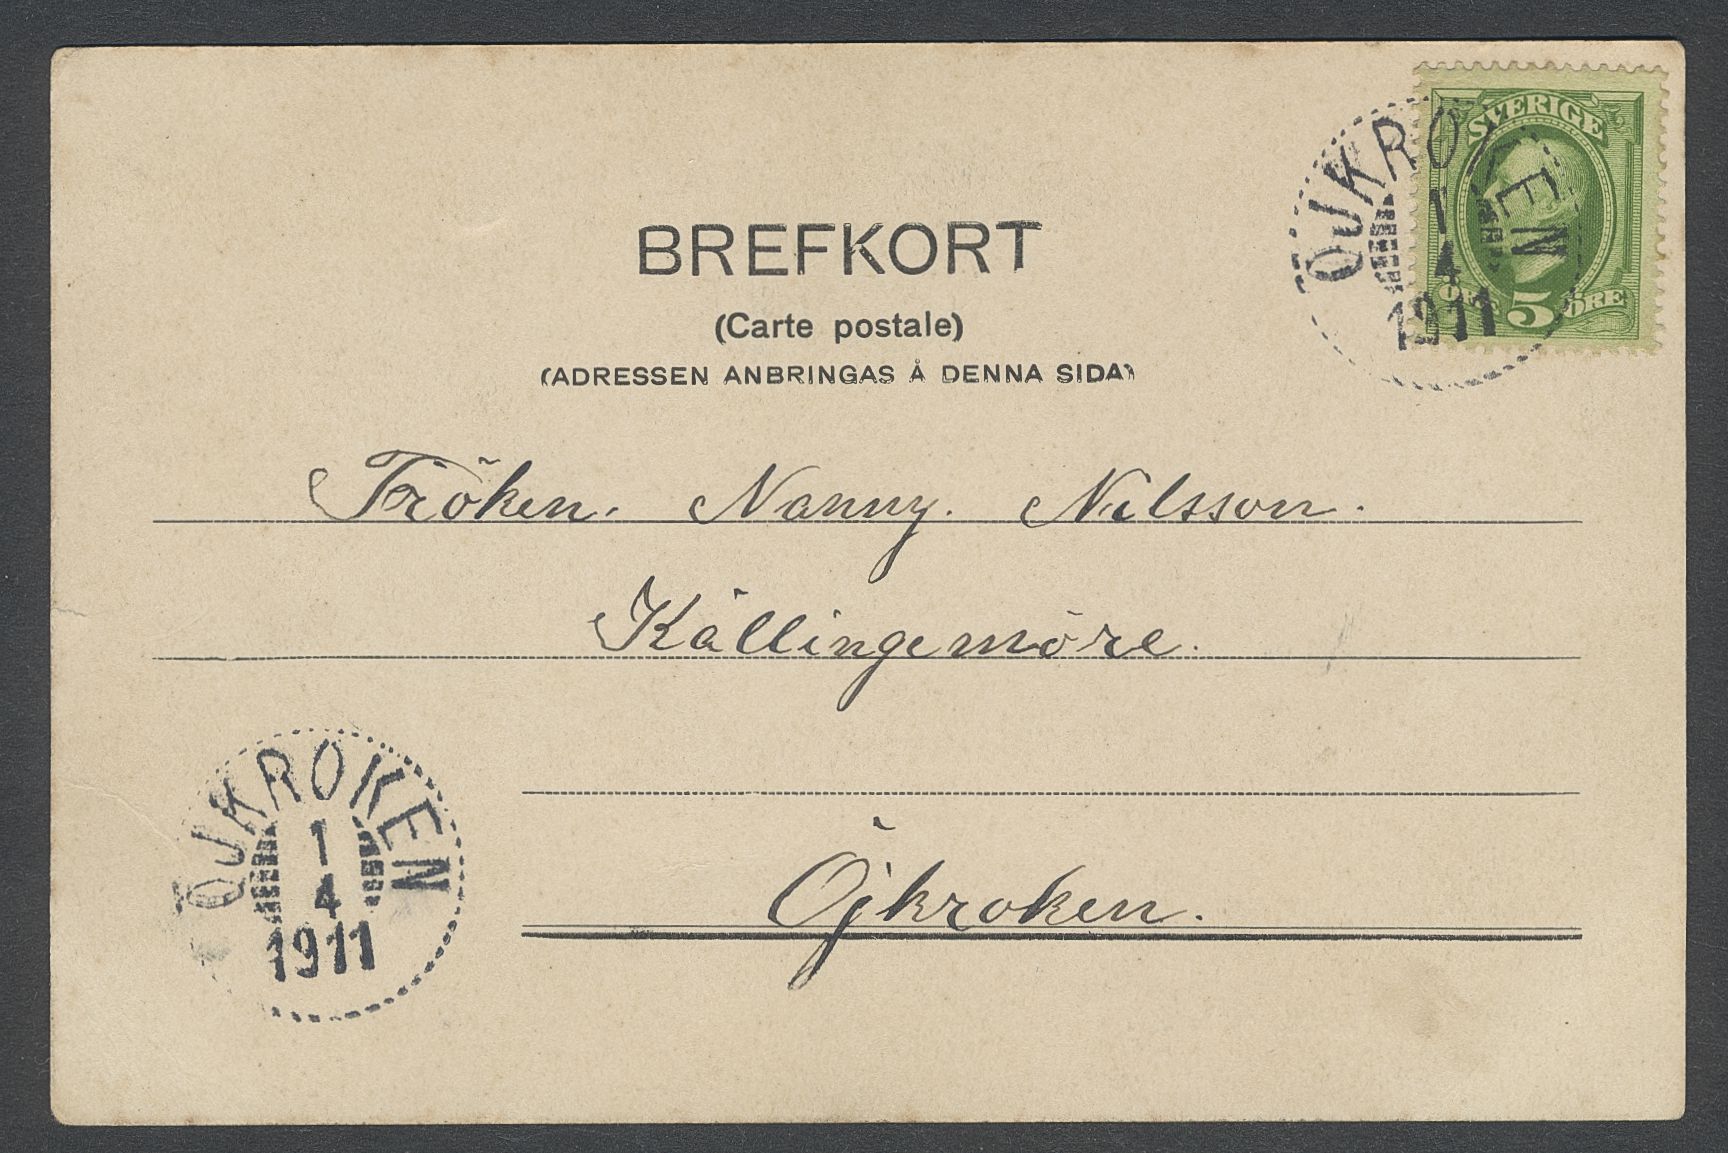 BREFKORT
(Carte postale)
(ADRESSEN ANBRINGAS Å DENNA SIDA)
SVERIGE
ÖRE 5 ÖRE
ÖJKROKEN
1
4
1911
Fröken. Nanny. Nilsson.
Källingemöre.
Öjkroken.
ÖJKROKEN
1
4
1911